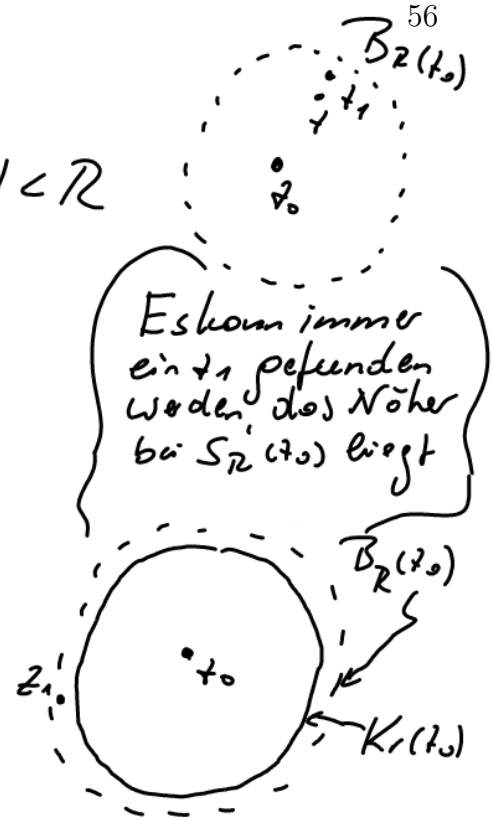 56
B_R(z_0)
z_1
z
< R
z_0
Es kann immer
ein z_1 gefunden
werden, das Näher
bei S_R(z_0) liegt
B_R(z_0)
z_0
z_1
K_r(z_0)